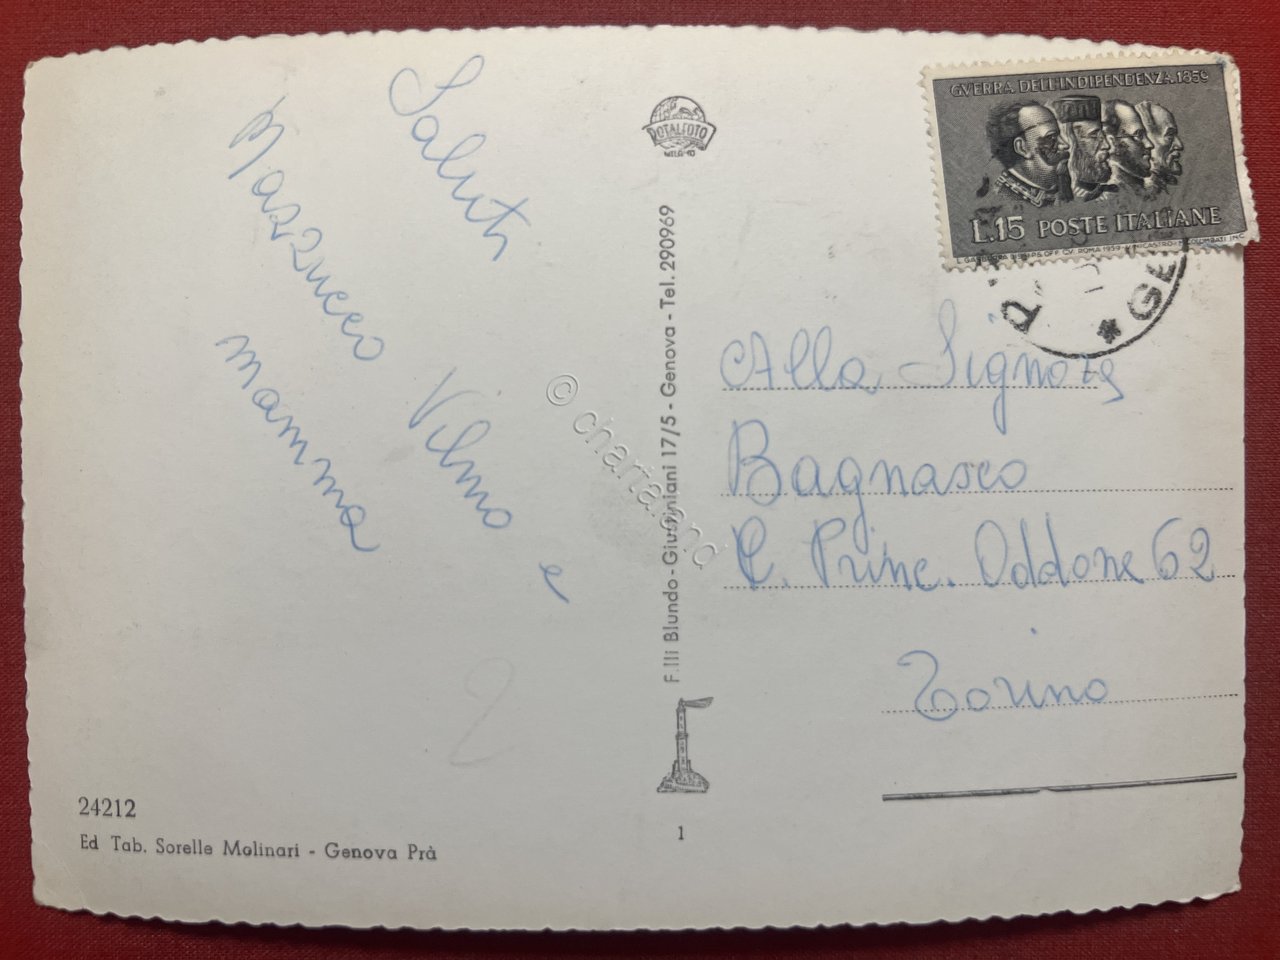 Saluti
Mazzucco Vilmo e
mamma
24212
Ed Tab. Sorelle Molinari - Genova Prà
ROTALFOTO
MILANO
F.lli Blundo - Giustiniani 17/5 - Genova - Tel. 290969
1
GVERRA DELL'INDIPENDENZA 1859
L.15 POSTE ITALIANE
GE
Alla Signora
Bagnasco
C. Princ. Oddone 62
Torino
© chartaland